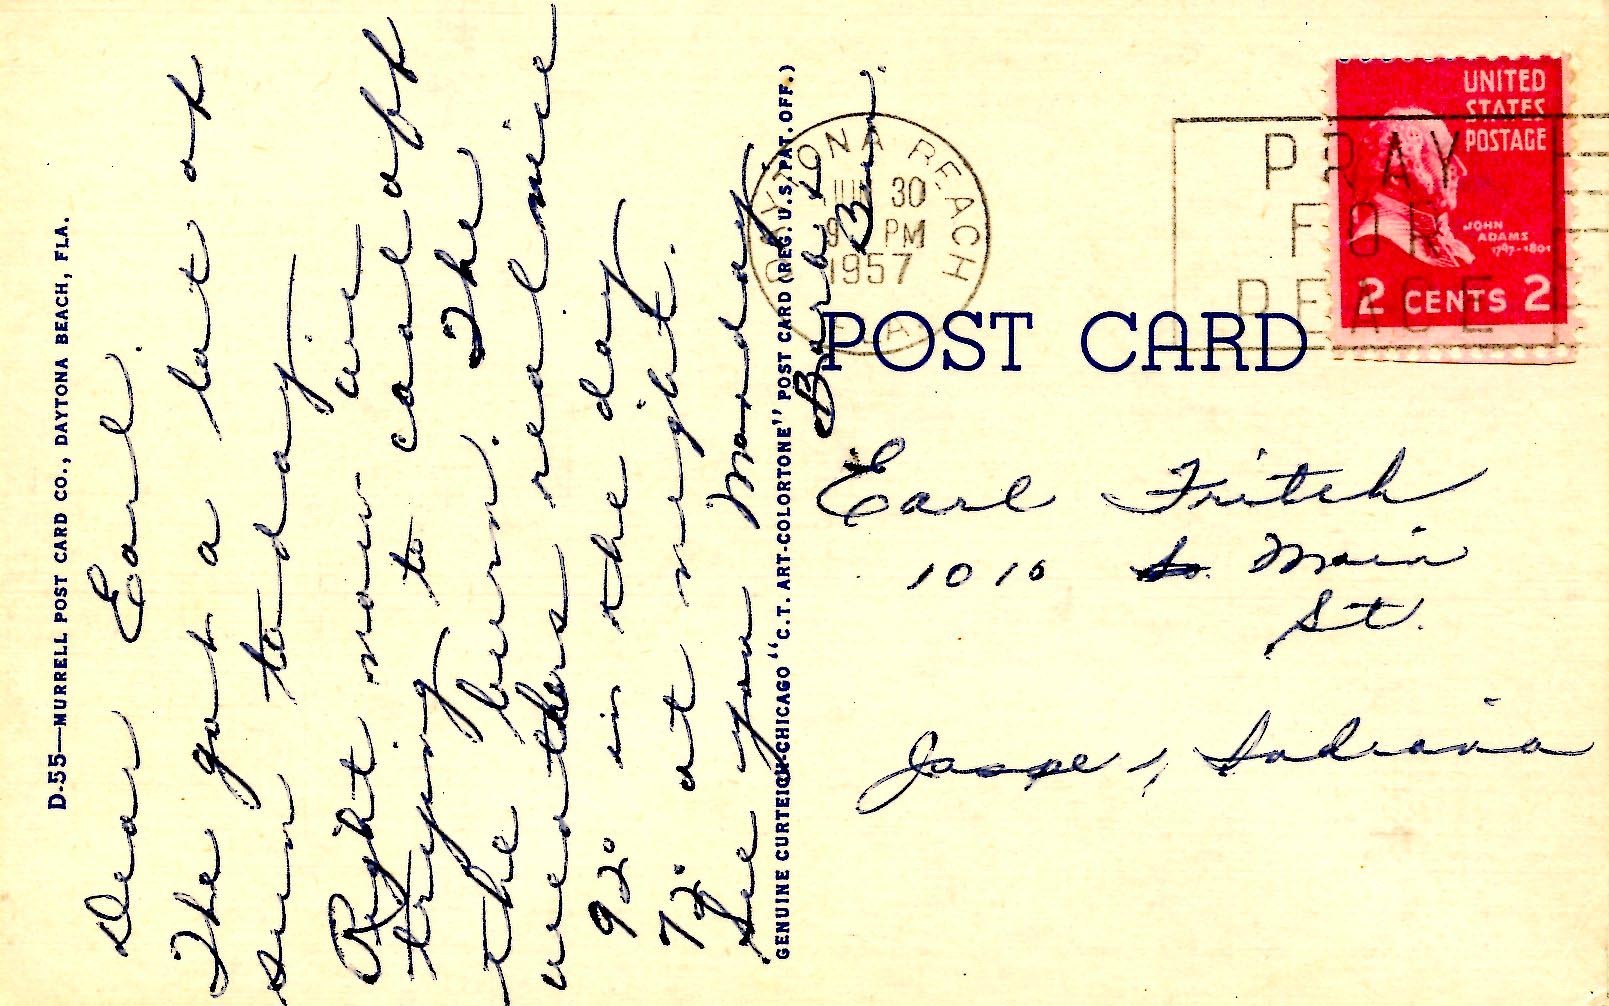 D-55—MURRELL POST CARD CO., DAYTONA BEACH, FLA.
Dear Earl.
The got a lot of
sun today
Right now we
trying to cool off
the burn. The
weathers real nice
92° in the day
72° at night.
See you Monday
Barb &
GENUINE CURTEICH-CHICAGO "C.T. ART-COLORTONE" POST CARD (REG. U.S. PAT. OFF.)
DAYTONA BEACH
30
9 PM
1957
PRAY
FOR
PEACE
UNITED
STATES
POSTAGE
JOHN
ADAMS
1797-1801
2 CENTS 2
POST CARD
Earl Fritch
1010 So. Main
St.
Jasper, Indiana